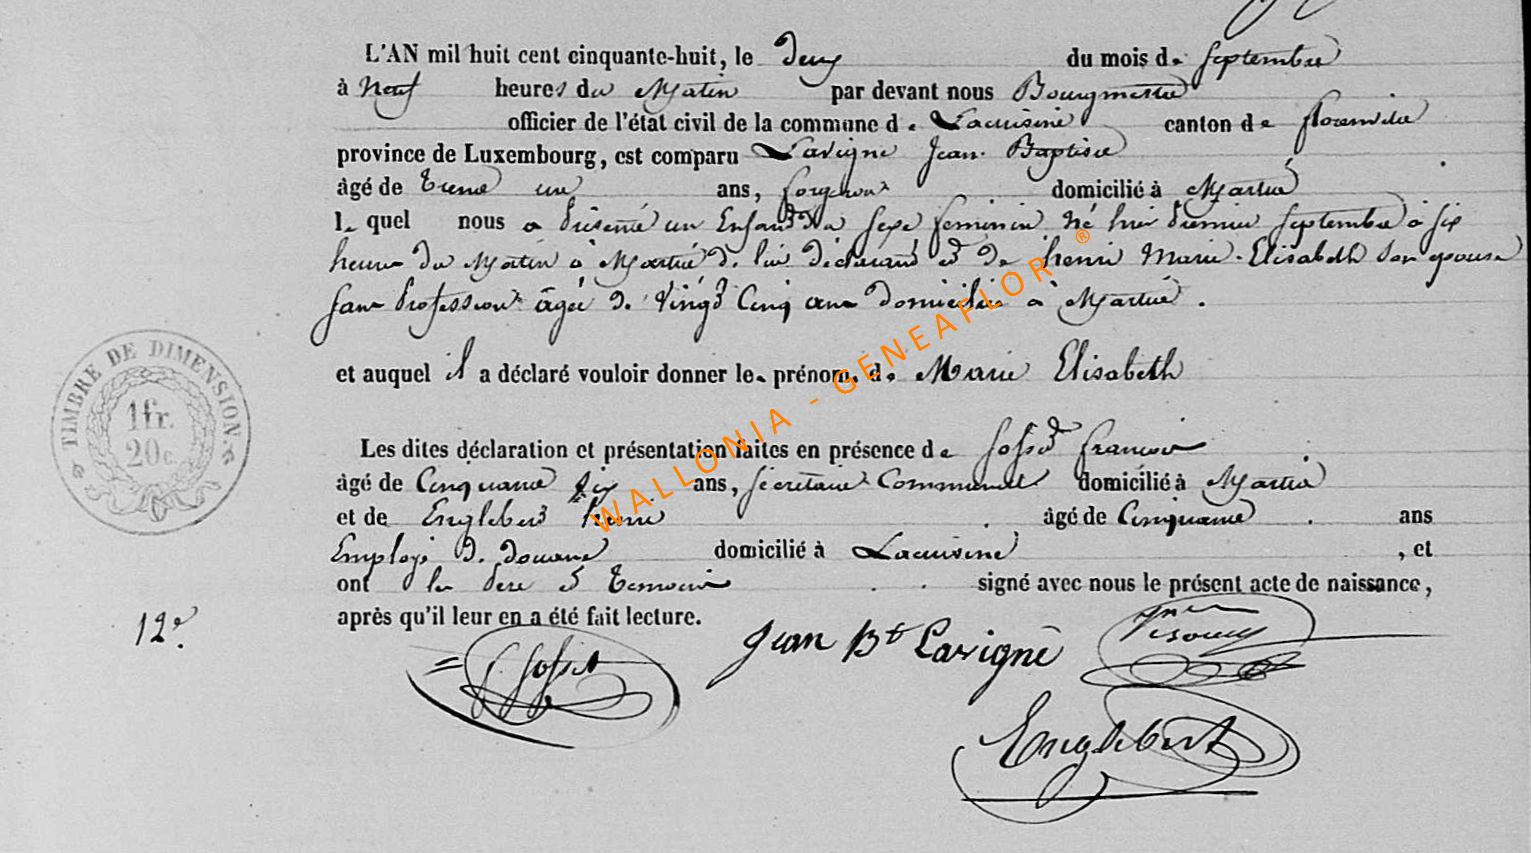 L'AN mil huit cent cinquante-huit, le deux du mois de septembre
à Neuf heures du Matin par devant nous Bourgmestre
officier de l'état civil de la commune de Lacuisine canton de florenville
province de Luxembourg, est comparu Lavigne Jean Baptiste
âgé de trente un ans, forgeron domicilié à Martué
le quel nous a présenté un Enfant du sexe feminin né hier premier septembre à six
heures du Matin à Martué de lui déclarant et de henri Marie Elisabeth son epouse
sans Profession âgée de vingt cinq ans domiciliée à Martué.
et auquel il a déclaré vouloir donner le prénom de Marie Elisabeth
Les dites déclaration et présentation faites en présence de Gosset françois
âgé de Cinquante six ans, secrétaire Communal domicilié à Martué
et de Englebert âgé de Cinquante ans
Employé de douane domicilié à Lacuisine, et
ont les père et temoins signé avec nous le présent acte de naissance,
après qu'il leur en a été fait lecture.
12e.
Jean Bt Lavigne
Gosset
Englebert
TIMBRE DE DIMENSION
1fr.
20c
WALLONIA - GENEAFLOR ®